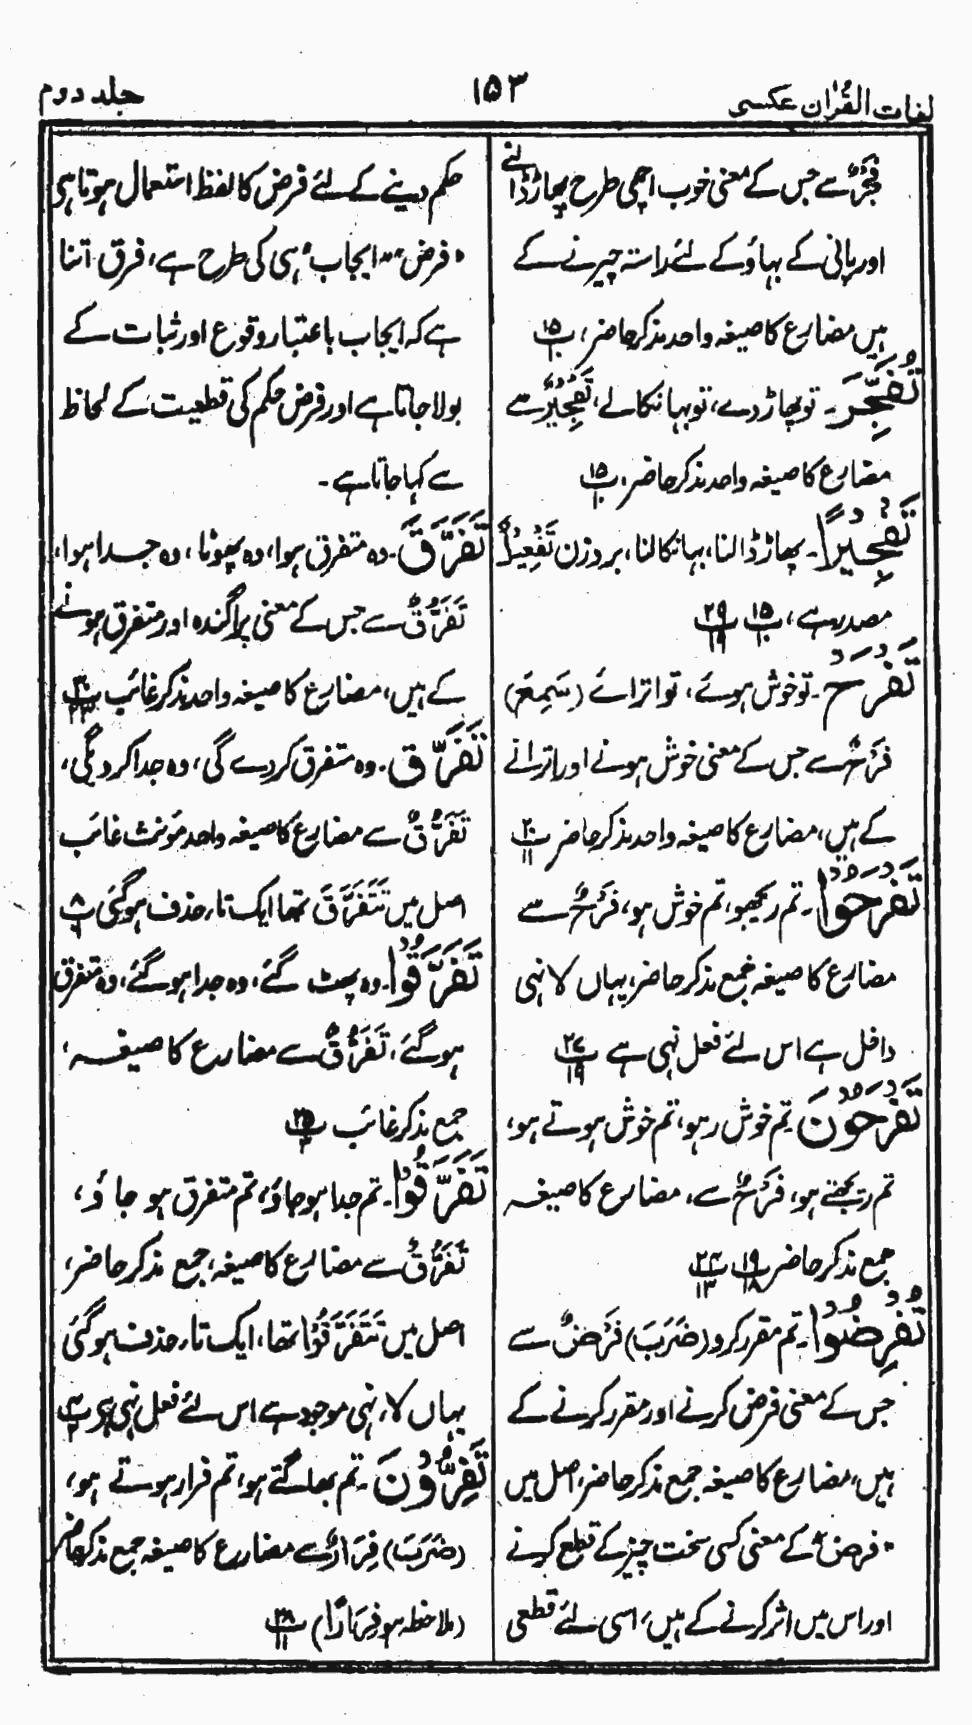 لغات القرآن عکسی
۱۵۳
جلد دوم
فَجْرٌ سے جس کے معنی خوب اچھی طرح پھاڑ ڈالنے
اور پانی کے بہاؤ کے لئے راستہ چیرنے کے
ہیں مضارع کا صیغہ واحد مذکر حاضر، ۱۵/۱۰
تُفَجِّرَ۔ تو پھاڑ دے، تو بہا نکالے، تَفْجِیْرٌ سے
مضارع کا صیغہ واحد مذکر حاضر، ۱۵/۱۰
تَفْجِیْرًا۔ پھاڑ ڈالنا، بہا نکالنا، بروزن تَفْعِیْلٌ
مصدر ہے، ۱۵/۱۰ ۲۹/۱۹
تَفْرَحْ۔ تو خوش ہوئے، تو اترائے (سَمِعَ)
فَرَحٌ سے جس کے معنی خوش ہونے اور اترانے
کے ہیں، مضارع کا صیغہ واحد مذکر حاضر ۲۰/۱۱
تَفْرَحُوْا۔ تم ریجھو، تم خوش ہو، فَرَحٌ سے
مضارع کا صیغہ جمع مذکر حاضر، یہاں لا نہی
داخل ہے اس لئے فعل نہی ہے ۲۷/۱۹
تَفْرَحُوْنَ۔ تم خوش رہو، تم خوش ہوتے ہو،
تم ریجھتے ہو، فَرَحٌ سے، مضارع کا صیغہ
جمع مذکر حاضر ۱۹/۱۸ ۲۴/۱۳
تَفْرِضُوْا۔ تم مقرر کرو (ضَرَبَ) فَرْضٌ سے
جس کے معنی فرض کرنے اور مقرر کرنے کے
ہیں، مضارع کا صیغہ جمع مذکر حاضر، اصل میں
"فرض" کے معنی کسی سخت چیز کے قطع کرنے
اور اس میں اثر کرنے کے ہیں، اسی لئے قطعی
حکم دینے کے لئے فرض کا لفظ استعمال ہوتا ہی
"فرض" "ایجاب" ہی کی طرح ہے، فرق اتنا
ہے کہ ایجاب باعتبار وقوع اور ثبات کے
بولا جاتا ہے اور فرض حکم کی قطعیت کے لحاظ
سے کہا جاتا ہے۔
تَفَرَّقَ۔ وہ متفرق ہوا، وہ پھوٹا، وہ جدا ہوا،
تَفَرُّقٌ سے جس کے معنی پراگندہ اور متفرق ہونے
کے ہیں، مضارع کا صیغہ واحد مذکر غائب
تَفَرَّقَ۔ وہ متفرق کردے گی، وہ جدا کردیگی،
تَفَرُّقٌ سے مضارع کا صیغہ واحد مؤنث غائب
اصل میں تَتَفَرَّقَ تھا ایک تاء حذف ہوگئی ۸/۶
تَفَرَّقُوْا۔ وہ پھٹ گئے، وہ جدا ہوگئے، وہ متفرق
ہوگئے، تَفَرُّقٌ سے مضارع کا صیغہ،
جمع مذکر غائب ۲۵/۳
تَفَرَّقُوْا۔ تم جدا ہوجاؤ، تم متفرق ہو جاؤ،
تَفَرُّقٌ سے مضارع کا صیغہ، جمع مذکر حاضر،
اصل میں تَتَفَرَّقُوْا تھا، ایک تاء حذف ہوگئی
یہاں لاء نہی موجود ہے اس لئے فعل نہی ہی
تَفِرُّوْنَ۔ تم بھاگتے ہو، تم فرار ہوتے ہو،
(ضَرَبَ) فِرَارٌ سے مضارع کا صیغہ جمع مذکر حاضر
(ملاحظہ ہو فِرَارًا) ۲۸/۱۱